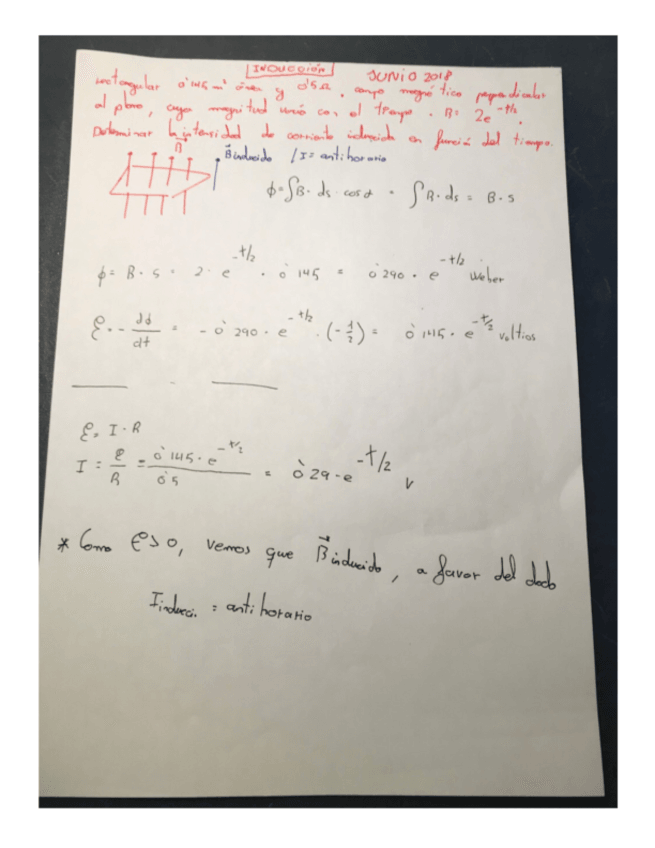 INDUCCIÓN JUNIO 2018
rectangular 0'145 m² área y 0'5Ω, campo magnético perpendicular
al plano, cuya magnitud varía con el tiempo. B = 2e^-t/2.
Determinar la intensidad de corriente inducida en función del tiempo.
B
B inducido / I = antihorario
ϕ = ∫B · ds · cos α = ∫B · ds = B · s
ϕ = B · s = 2 · e^-t/2 · 0'145 = 0'290 · e^-t/2 Weber
ε = - dϕ/dt = - 0'290 · e^-t/2 · (-1/2) = 0'145 · e^-t/2 voltios
ε = I · R
I = ε/R = 0'145 · e^-t/2 / 0'5 = 0'29 · e^-t/2 V
* Como ε>0, vemos que B inducido, a favor del dado
I induci. = antihorario